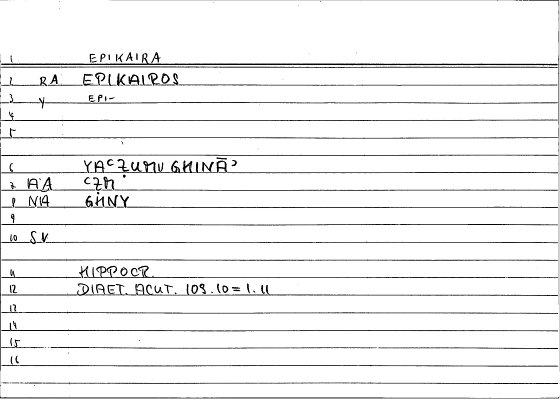 1 EPIKAIRA
2 RA EPIKAIROS
3 Y EPI-
4
5
6 YAʿẒUMU GHINĀʾ
7 AA ʿẒM
8 NA GHNY
9
10 SV
11 HIPPOCR.
12 DIAET. ACUT. 109.10 = 1.11
13
14
15
16